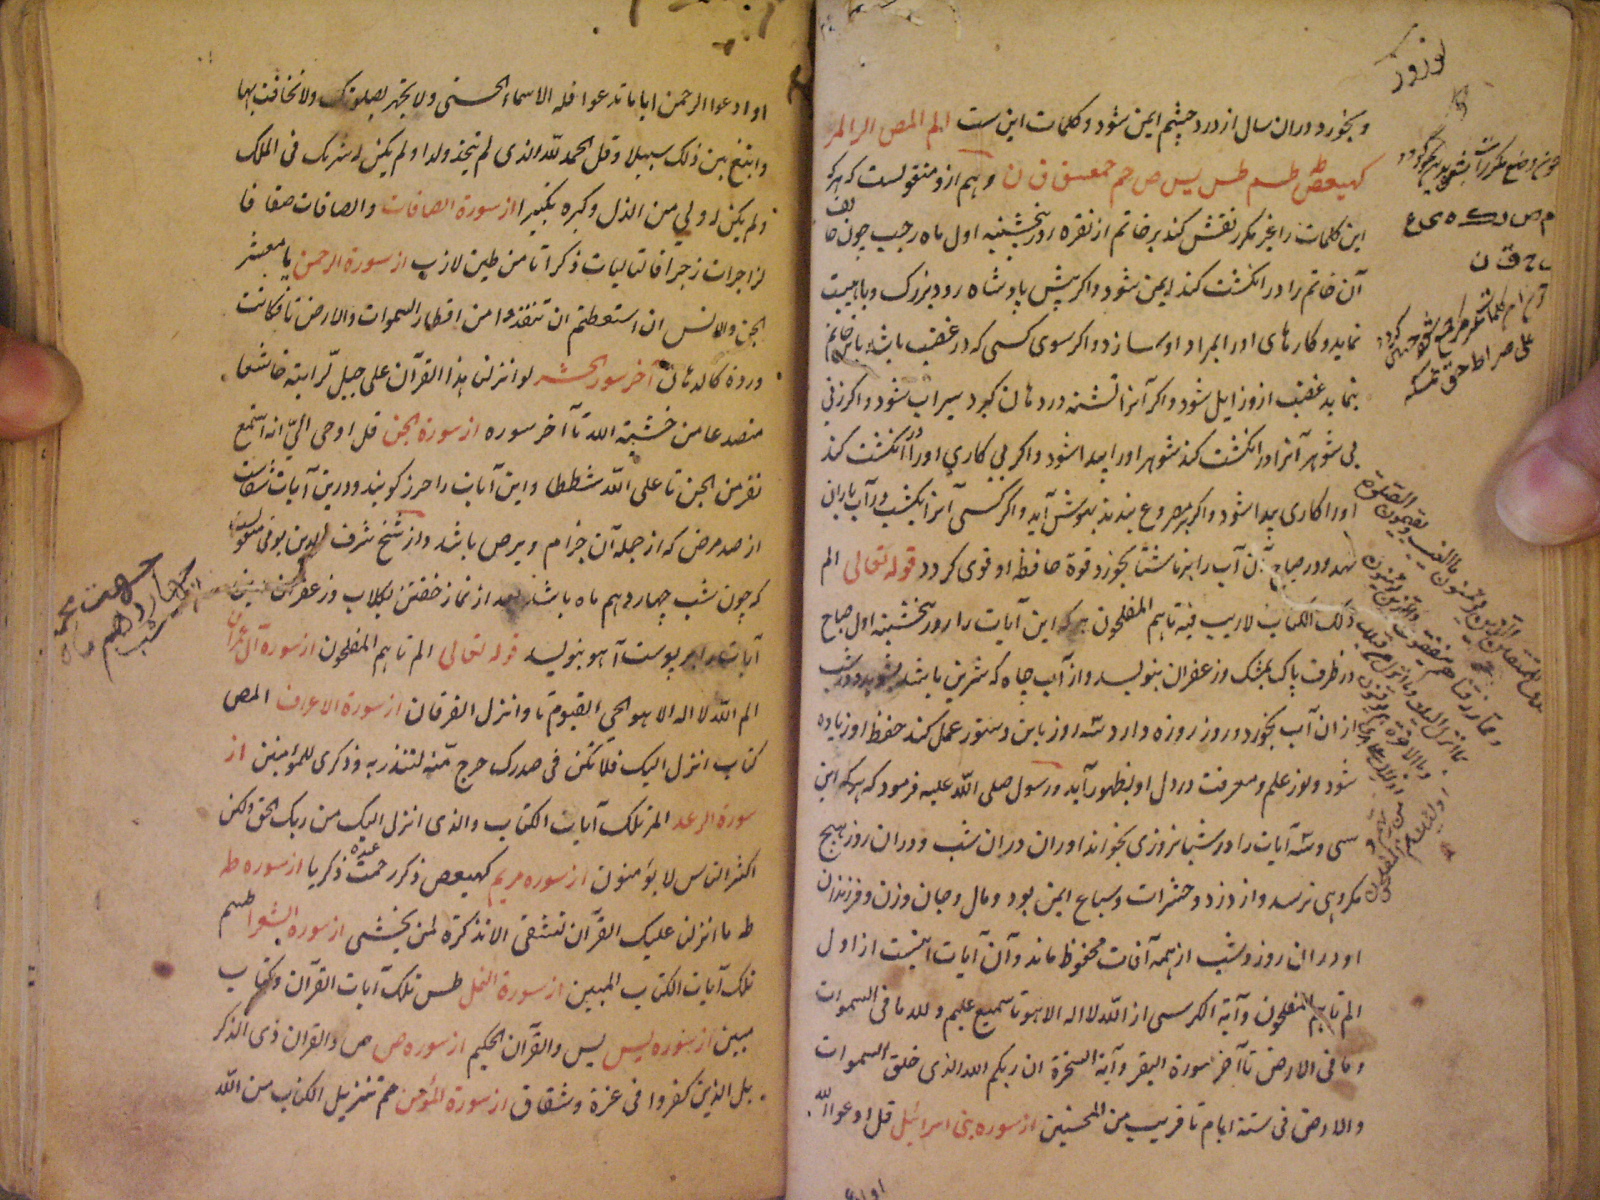 و بخورد در ان سال از درد چشم ایمن شود و کلمات این ست الم المص الر المر
کهیعص طه طسم طس یس ص حم حمعسق ق ن و هم ازو منقولست که هر که
این کلمات را غیر مکرر نقش کند بر خاتم از نقره روز پنجشنبه اول ماه رجب چون
آن خاتم را در انکشت کند ایمن شود و اکر پیش پادشاه رود بزرک و باهیبت
نماید و کارهای اورا بمراد او سازد و اکر سوی کسی که در غضب باشد باین خاتم
بنماید غضب ازو زایل شود و اکر آنرا تشنه در دهان کیرد سیراب شود و اکر زنی
بی شوهر آنرا در انکشت کند شوهر اورا پیدا شود و اکر بی کاری اورا در انکشت کند
اورا کاری پیدا شود و اکر بر مصروع بندند بهوش آید و اکر کسی آنرا یکشب در آب باران
نهد و در صباح آن آب را بر ناشتا بخورد قوة حافظه او قوی کردد قوله تعالی الم
ذلک الکتاب لاریب فیه تا هم المفلحون هر که این آیات را روز پنجشنبه اول صباح
در ظرف پاک بمشک و زعفران بنویسد و از آب چاه که شیرین باشد بشوید و در شب
ازان آب بخورد و روز روزه دارد سه روز باین دستور عمل کند حفظ او زیاده
شود و نور علم و معرفت در دل او بظهور آید و رسول صلی الله علیه فرمود که هر که این
سی و سه آیات را در شبانروزی بخواند او ران در ان شب و در ان روز هیچ
مکروهی نرسد و از دزد و حشرات و سباع ایمن بود و مال و جان و زن و فرزندان
او در ان روز و شب از همه آفات محفوظ ماند و آن آیات اینست از اول
الم تا هم المفلحون و آیة الکرسی از الله لا اله الا هو تا سمیع علیم و لله ما فی السموات
و ما فی الارض تا آخر سورة البقر و آیة السخرة ان ربکم الله الذی خلق السموات
والارض فی ستة ایام تا قریب من المحسنین از سوره بنی اسرائیل قل ادعوا الله
نوروز
م ص ر ک ه ی ع
ح ق ن
علی صراط حق نمسکه
او ادعوا الرحمن ایا ما تدعوا فله الاسماء الحسنی ولا تجهر بصلوتک ولا تخافت بها
وابتغ بین ذلک سبیلا وقل الحمد لله الذی لم یتخذ ولدا ولم یکن له شریک فی الملک
ولم یکن له ولی من الذل وکبره تکبیرا از سورة الصافات والصافات صفا فا
لزاجرات زجرا فالتالیات ذکرا تا من طین لازب از سورة الرحمن یا معشر
الجن والانس ان استطعتم ان تنفذوا من اقطار السموات والارض تا فکانت
وردة کالدهان آخر سورة الحشر لو انزلنا هذا القرآن علی جبل لرایته خاشعا
متصدعا من خشیة الله تا آخر سوره از سورة الجن قل اوحی الیّ انه استمع
نفر من الجن تا علی الله شططا و این آیات را حرز کویند و درین آیات شفاست
از صد مرض که از جمله آن جزام و برص باشد و از شیخ شرف الدین بونی منقولست
که چون شب چهاردهم ماه باشد بعد از نماز خفتن بکلاب و زعفران این
آیات را بر پوست آهو بنویسد قوله تعالی الم تا هم المفلحون از سورة آل عمران
الم الله لا اله الا هو الحی القیوم تا وانزل الفرقان از سورة الاعراف المص
کتاب انزل الیک فلا تکن فی صدرک حرج منه لتنذر به وذکری للمؤمنین از
سورة الرعد المر تلک آیات الکتاب والذی انزل الیک من ربک الحق ولکن
اکثر الناس لا یؤمنون از سوره مریم کهیعص ذکر رحمت عبده ذکریا از سوره طه
طه ما انزلنا علیک القرآن لتشقی الا تذکرة لمن یخشی از سورة الشعرا طسم
تلک آیات الکتاب المبین از سورة النمل طس تلک آیات القرآن وکتاب
مبین از سوره یس یس والقرآن الحکیم از سوره ص ص والقران ذی الذکر
بل الذین کفروا فی عزة وشقاق از سورة المؤمن حم تنزیل الکتاب من الله
شب چهاردهم ماه